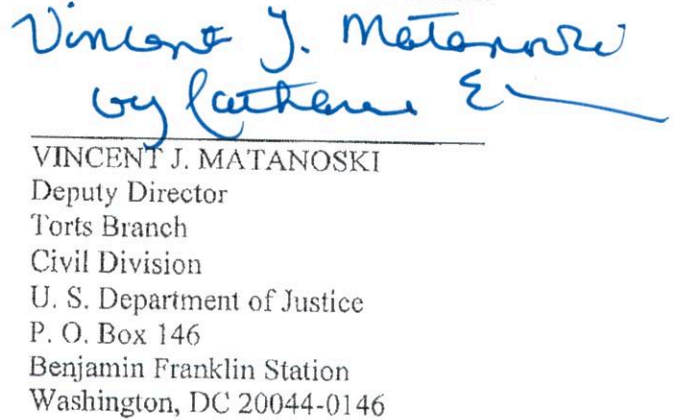 Vincent J. Matanoski
by Catharine E
VINCENT J. MATANOSKI
Deputy Director
Torts Branch
Civil Division
U. S. Department of Justice
P. O. Box 146
Benjamin Franklin Station
Washington, DC 20044-0146